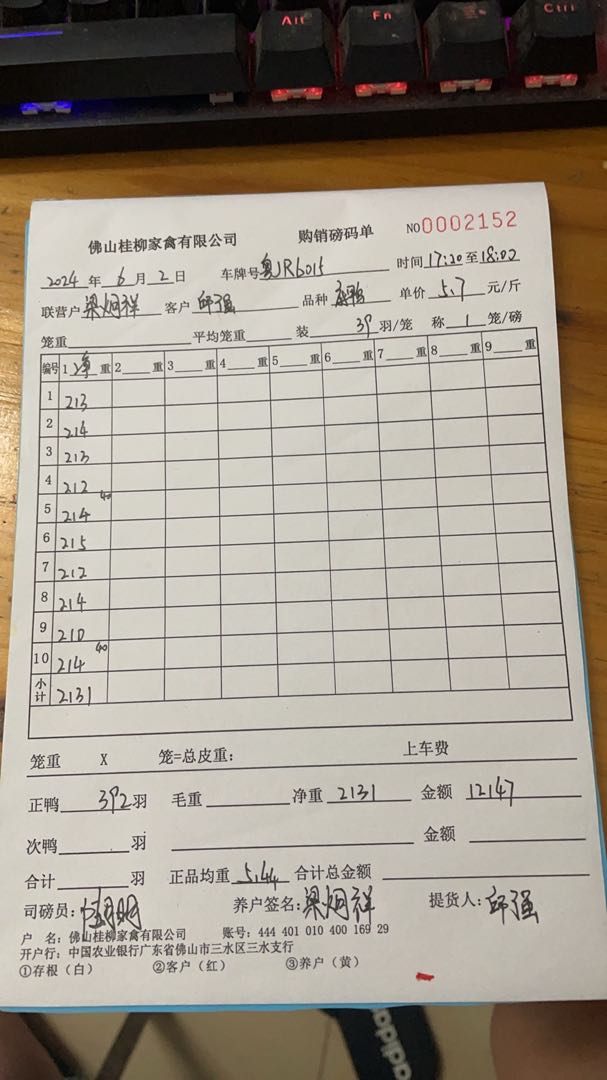 Alt Fn Ctrl
佛山桂柳家禽有限公司 购销磅码单 NO0002152
2024 年 6 月 2 日 车牌号粤JR6015 时间17:20至18:00
联营户梁炯祥 客户 邱强 品种 单价 5.7 元/斤
笼重 平均笼重 装 39 羽/笼 称 1 笼/磅
编号 1 净 重 2 重 3 重 4 重 5 重 6 重 7 重 8 重 9 重
1 213
2 214
3 213
4 212
5 214 40
6 215
7 212
8 214
9 210
10 214 40
小计 2131
笼重 X 笼=总皮重: 上车费
正鸭 392羽 毛重 净重 2131 金额 12147
次鸭 羽 金额
合计 羽 正品均重 5.44 合计总金额
司磅员: 养户签名:梁炯祥 提货人:邱强
户 名:佛山桂柳家禽有限公司 账号:444 401 010 400 169 29
开户行:中国农业银行广东省佛山市三水区三水支行
①存根(白) ②客户(红) ③养户(黄)
adidas